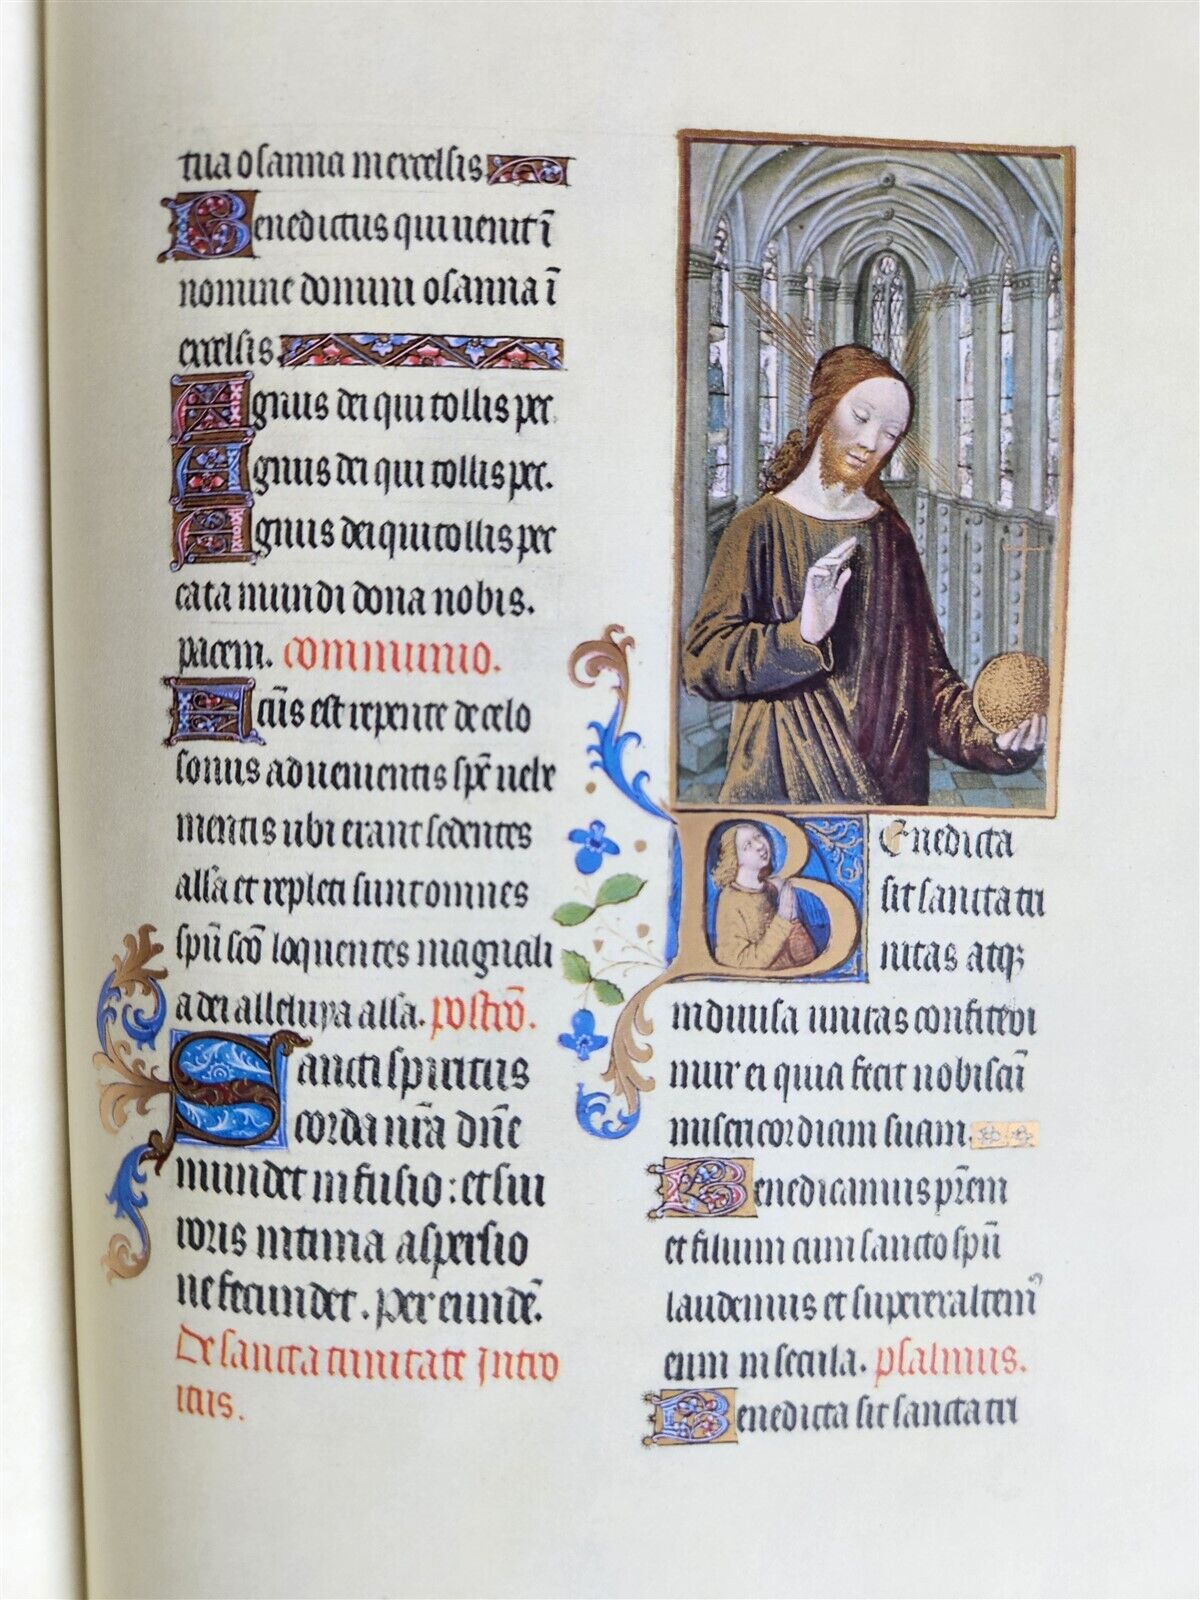 tua osanna in excelsis
Benedictus qui venit ī
nomine domini osanna ī
excelsis.
Agnus dei qui tollis pec
Agnus dei qui tollis pec.
Agnus dei qui tollis pec
cata mundi dona nobis.
pacem. communio.
Factus est repente de celo
sonus advenientis spūs vehe
mentis ubi erant sedentes
alla et repleti sunt omnes
spū sc̄o loquentes magnali
a dei alleluya alla. postcō.
Sancti spiritus
corda nr̄a dn̄e
mundet infusio: et sui
roris intima aspersio
ne fecundet. per eundē.
De sancta trinitate Intro
itus.
Benedicta
sit sancta tri
nitas atqꝫ
indivisa unitas confitebi
mur ei quia fecit nobiscū
misericordiam suam.
Benedicamus pr̄em
et filium cum sancto spū
laudemus et superexaltemꝰ
eum in secula. psalmus.
Benedicta sit sancta tri